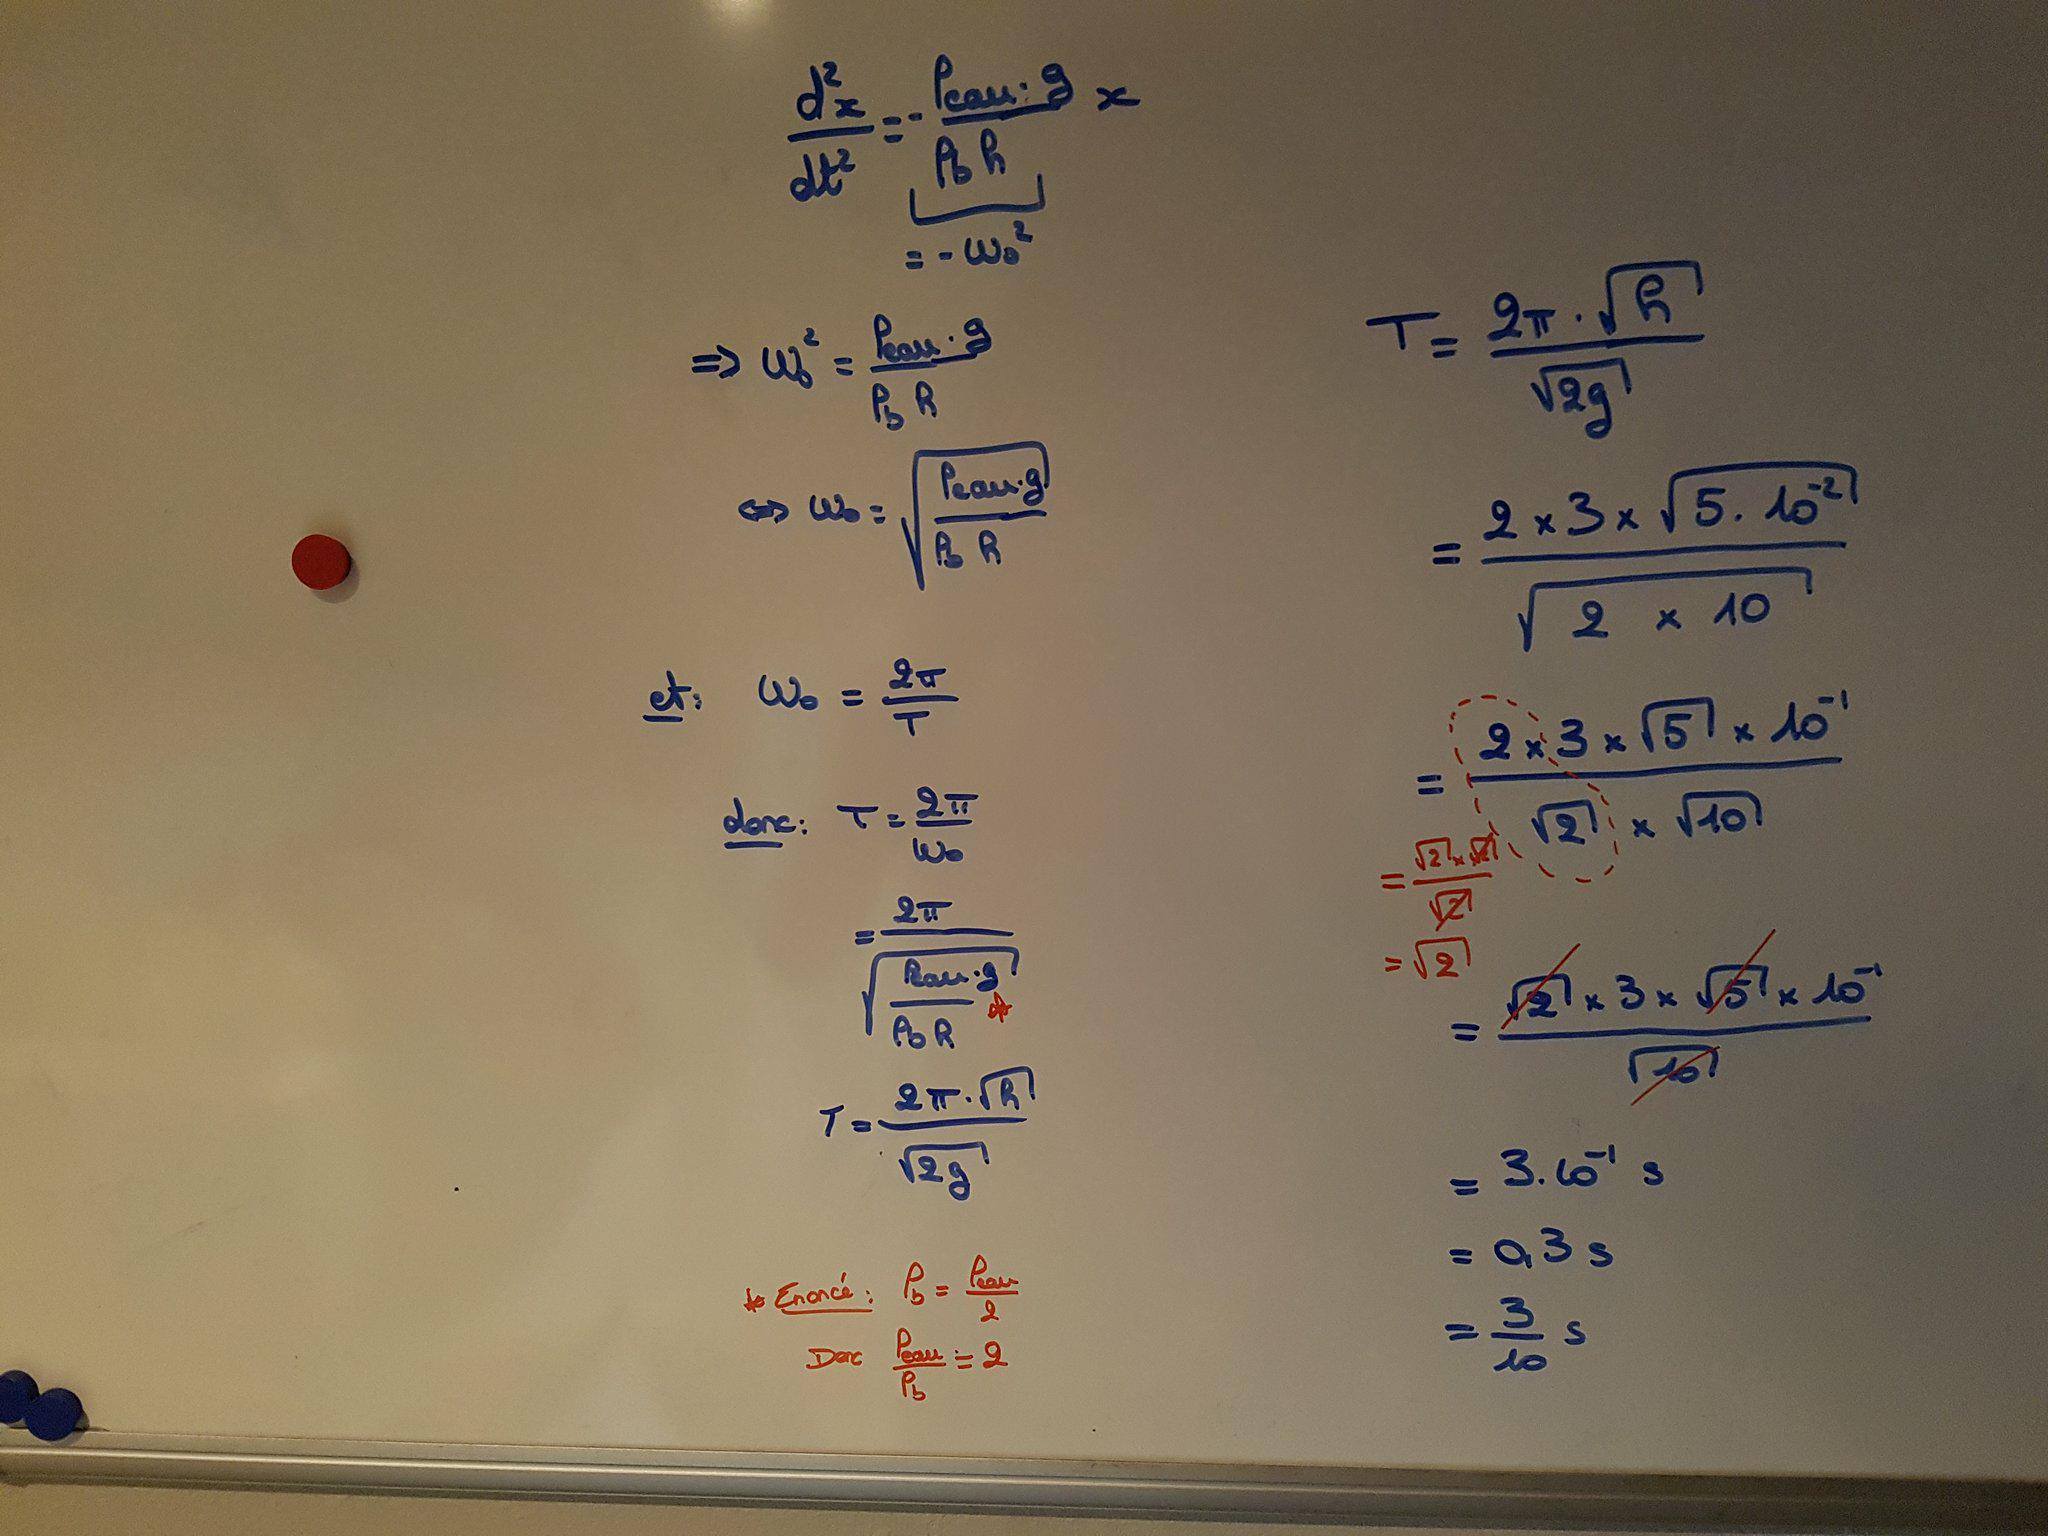 d²x/dt² = - ρeau·g/ρb h x
= - ω₀²
⇒ ω₀² = ρeau·g/ρb h
⇔ ω₀ = √(ρeau·g/ρb h)
et: ω₀ = 2π/T
donc: T = 2π/ω₀
= 2π/√(ρeau·g/ρb h) *
T = 2π·√h/√2g
* Enoncé: ρb = ρeau/2
Donc ρeau/ρb = 2
T = 2π·√h/√2g
= 2 × 3 × √(5·10⁻²)/√(2 × 10)
= 2 × 3 × √5 × 10⁻¹/√2 × √10
= √2 × √2/√2
= √2
= √2 × 3 × √5 × 10⁻¹/√10
= 3·10⁻¹ s
= 0,3 s
= 3/10 s